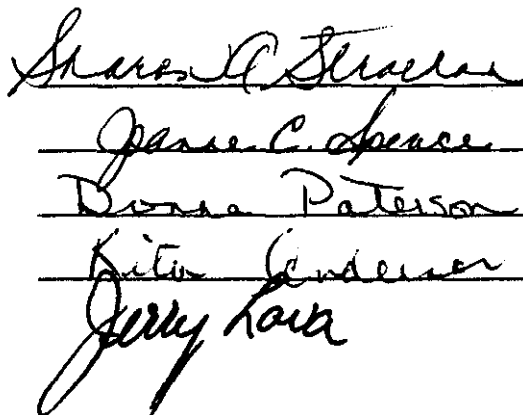 Sharon A Strachan
Joanne C. Spence
Donna Paterson
Rita Anderson
Jerry Lava